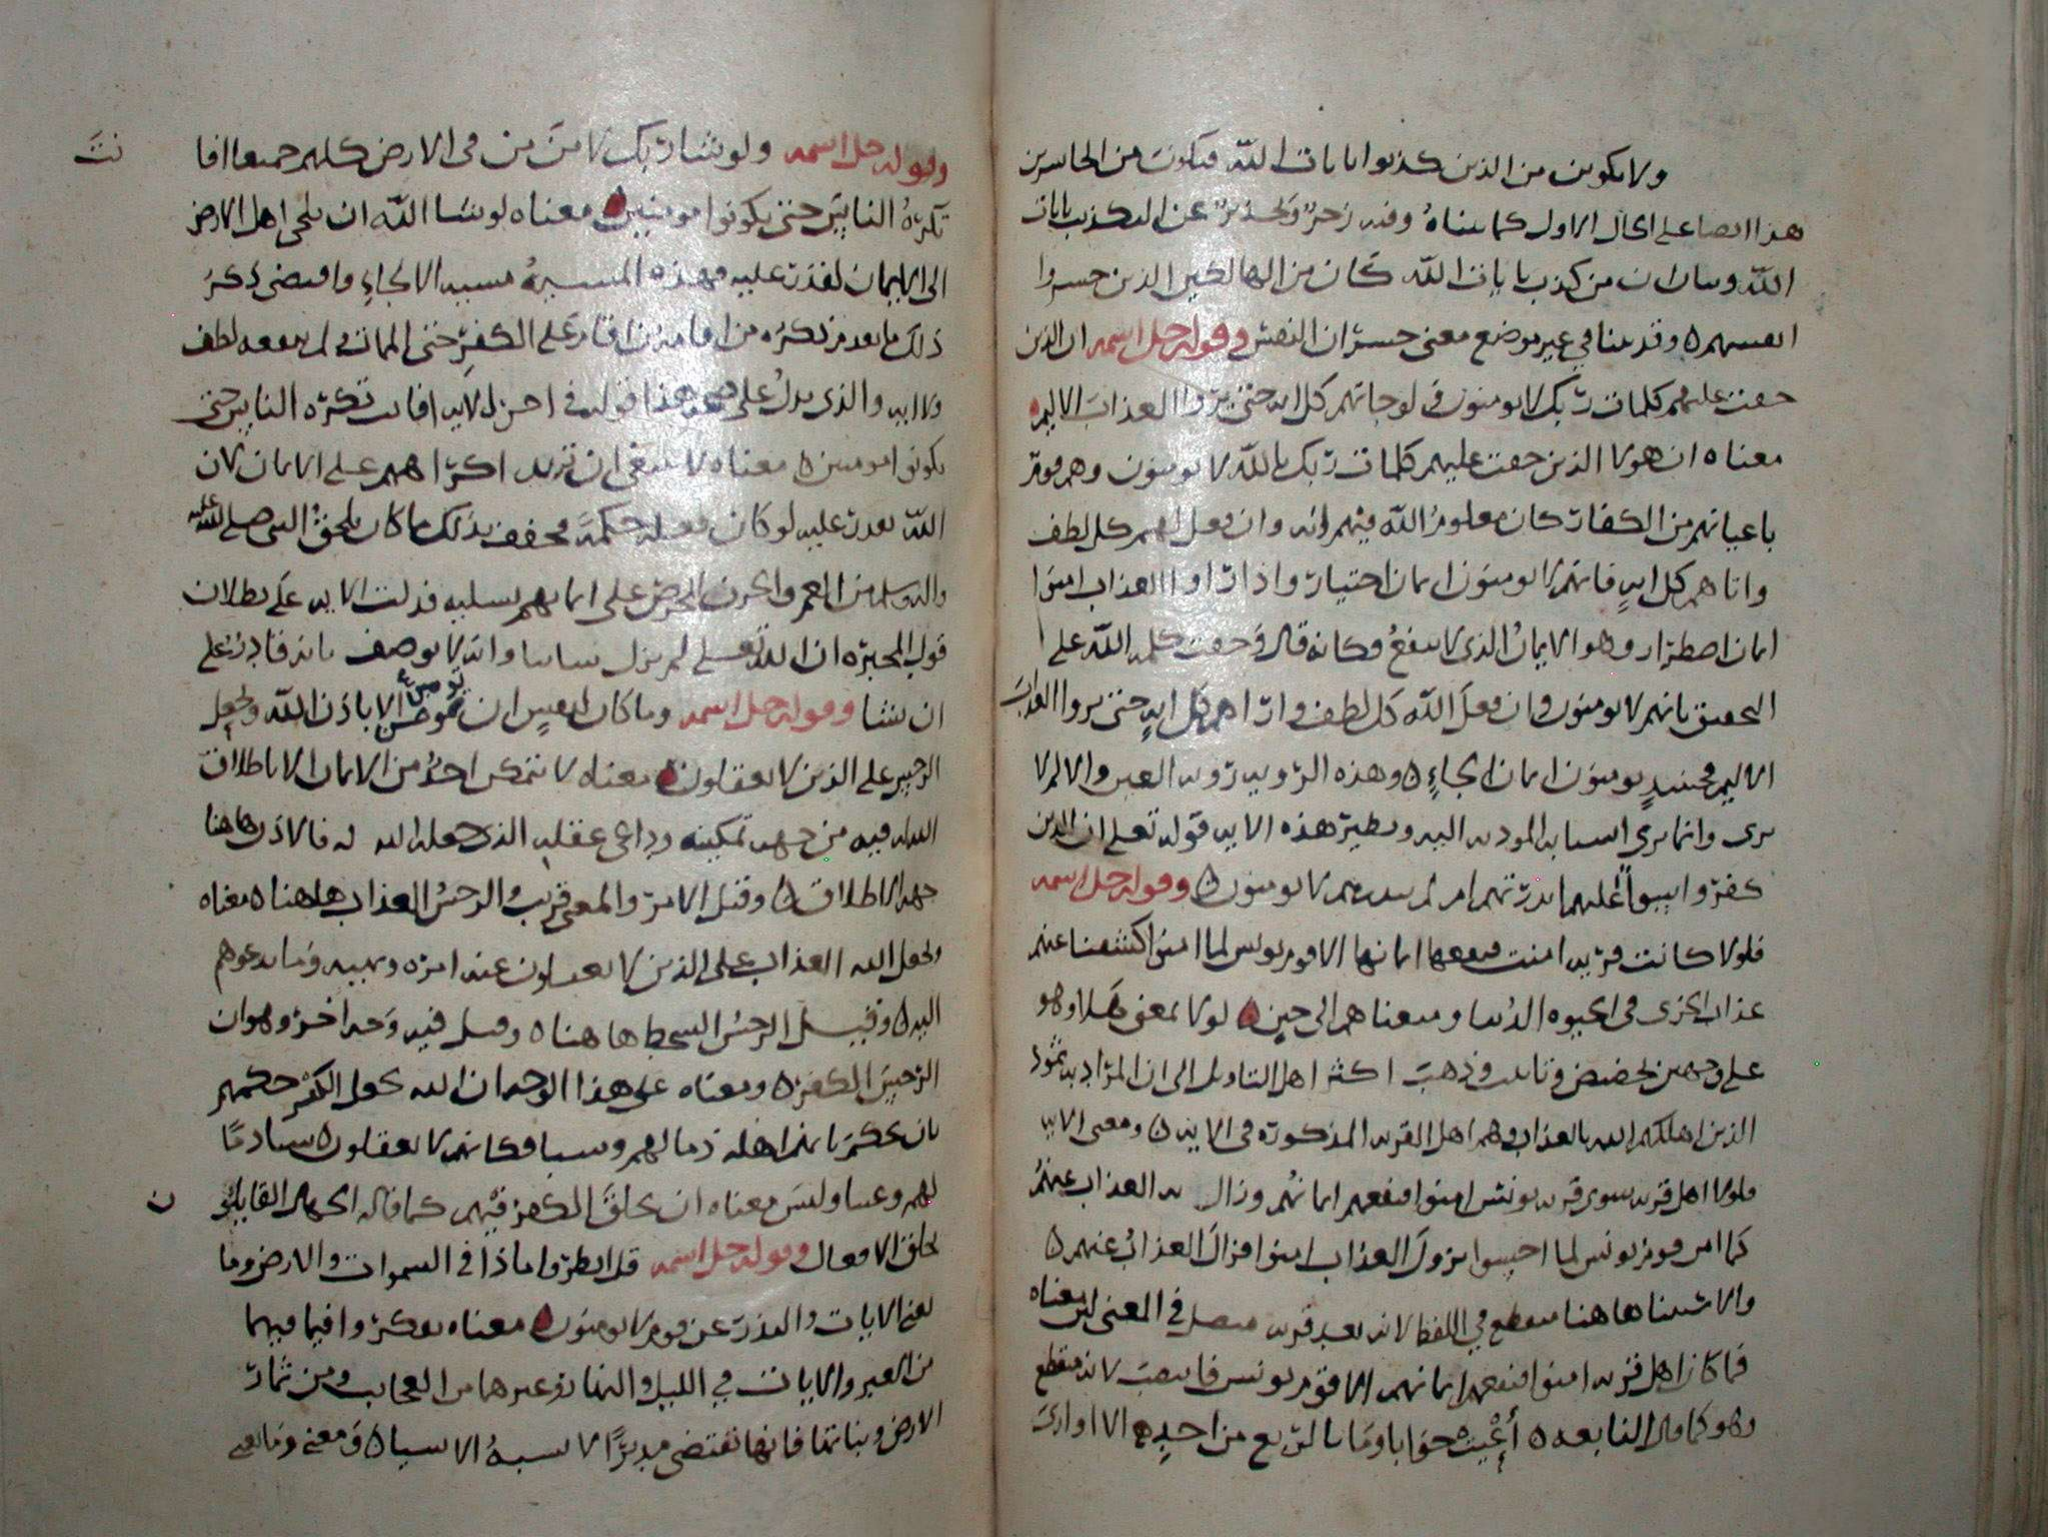 ولا تكونن من الذين كذبوا بايات الله فتكون من الخاسرين
هذا ايضا على الحال الاول كما بيناه وفيه زجر وتحذير عن التكذيب بايات
الله وبيان ان من كذب بايات الله كان من الهالكين الذين خسروا
انفسهم ٥ وقد بينا في غير موضع معنى خسران النفس وقوله جل اسمه ان الذين
حقت عليهم كلمات ربك لا يومنون ولو جاتهم كل اية حتى يروا العذاب الاليم
معناه ان هولا الذين حقت عليهم كلمات ربك بالله لا يومنون وهم قوم
باعيانهم من الكفار كان معلوم الله فيهم انه وان فعل لهم كل لطف
واتاهم كل اية فانهم لا يومنون ايمان اختيار واذا راوا العذاب امنوا
ايمان اضطرار وهو الايمان الذي لا ينفع فكانه قال وحقت كلمة الله على
التحقيق بانهم لا يومنون وان فعل الله كل لطف واراهم كل اية حتى يروا العذاب
الاليم فحينيذ يومنون ايمان الجاء ٥ وهذه الروية روية العين والالم لا
يرى وانما يرى اسبابه المودية اليه ونظير هذه الاية قوله تعلى ان الذين
كفروا سوا عليهم اانذرتهم ام لم تنذرهم لا يومنون ٥ وقوله جل اسمه
فلولا كانت قرية امنت فنفعها ايمانها الا قوم يونس لما امنوا كشفنا عنهم
عذاب الخزى في الحيوه الدنيا ومتعناهم الى حين ٥ لولا بمعنى هلا وهو
على وجهين تحضيض وتانيب وذهب اكثر اهل التاويل الى ان المراد به ثمود
الذين اهلكهم الله بالعذاب وهم اهل القرية المذكورة في الاية ٥ ومعنى الاية
فلولا اهل قرية سوى قرية يونس امنوا فنفعهم ايمانهم وزال به العذاب عنهم
كما امن قوم يونس لما احسوا بنزول العذاب امنوا فزال العذاب عنهم ٥
والاستثنا هاهنا منقطع في اللفظ لانه بعد قرية متصل في المعنى لان معناه
فما كان اهل قرية امنوا فنفعهم ايمانهم الا قوم يونس فانتصب لانه منقطع
وهو كما قال النابغه ٥ أعيت جوابا وما بالربع من احد ٥ الا اواري
وقوله جل اسمه ولو شا ربك لامن من في الارض كلهم جميعا افا
نت
تكره الناس حتى يكونوا مومنين ٥ معناه لو شا الله ان يلجي اهل الارض
الى الايمان لقدر عليه فهذه المشية مشية الالجاء واقتضى ذكر
ذلك ما تقدم ذكره من اقامة من اقام على الكفر حتى الممات ولم ينفعه لطف
ولا اية والذي يدل على صحة هذا قوله في اخر الاية افانت تكره الناس حتى
يكونوا مومنين ٥ معناه لا ينبغي ان تريد اكراههم على الايمان لان
الله يقدر عليه لو كان فعله حكمة فخفف بذلك ما كان يلحق النبي صلى الله عليه
واله وسلم من الغم والحزن للحرص على ايمانهم تسلية فدلت الاية على بطلان
قول المجبره ان الله تعلى لم يزل شاييا وانه لا يوصف بانه قادر على
ان يشا وقوله جل اسمه وما كان لنفس ان تومن الا باذن الله ويجعل
الرجس على الذين لا يعقلون ٥ معناه لا يتمكن احد من الايمان الا باطلاق
الله له فيه من جهة تمكينه وداعي عقله الذي جعله الله له فالاذن هاهنا
جهة الاطلاق ٥ وقيل الامر والمعنى قريب والرجس العذاب هاهنا ٥ معناه
ويجعل الله العذاب على الذين لا يعقلون عنه امره ونهيه وما يدعوهم
اليه ٥ وقيل الرجس السخط هاهنا ٥ وقيل فيه وجه اخر وهو ان
الرجس الكفر ٥ ومعناه على هذا الوجه ان الله يجعل الكفر حكمهم
بان يحكم بانهم اهله ذما لهم وسبا فكانهم لا يعقلون ٥ سبا وذما
لهم وعيبا وليس معناه ان يخلق الكفر فيهم كما قاله الجهال القايلون
ن
بخلق الافعال وقوله جل اسمه قل انظروا ماذا في السموات والارض وما
تغني الايات والنذر عن قوم لا يومنون ٥ معناه تفكروا فيما فيهما
من العبر والايات في الليل والنهار وغيرهما من العجايب ومن ثمار
الارض ونباتها فانها تقتضي مدبرا لا يشبه الاشيا ٥ ومعنى وما تغني